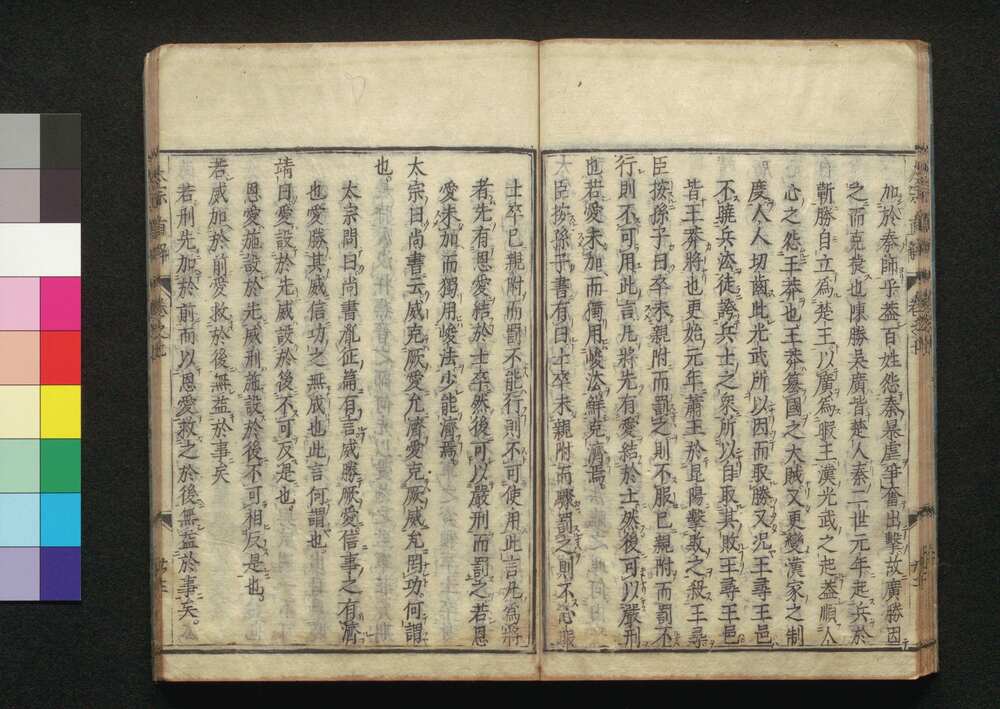 加於秦師乎蓋百姓怨秦暴虐爭奮出擊故廣勝因
之而克秦也陳勝吳廣皆楚人秦二世元年起兵於
蘄勝自立為楚王以廣為假王漢光武之起蓋順人
心之怨王莽也王莽篡國之大賊又更變漢家之制
度人人切齒此光武所以因而取勝又況王尋王邑
不曉兵法徒誇兵士之衆所以自取其敗王尋王邑
皆王莽將也更始元年蕭王於昆陽擊敗之殺王尋
臣按孫子曰卒未親附而罰之則不服已親附而罰不
行則不可用此言凡將先有愛結於士然後可以嚴刑
也若愛未加而獨用峻法鮮克濟焉
大臣按孫子書有曰士卒未親附而驟罰之則不心服
士卒已親附而罰不能行則不可使用此言凡為將
者先有恩愛結於士卒然後可以嚴刑而罰之若恩
愛未加而獨用峻法少能濟焉
太宗曰尚書云威克厥愛允濟愛克厥威允罔功何謂
也
太宗問曰尚書胤征篇有言威勝厥愛信事之有濟
也愛勝其威信功之無成也此言何謂也
靖曰愛設於先威設於後不可反是也
恩愛施設於先威刑施設於後不可相反是也
若威加於前愛救於後無益於事矣
若刑先加於前而以恩愛救之於後無益於事矣